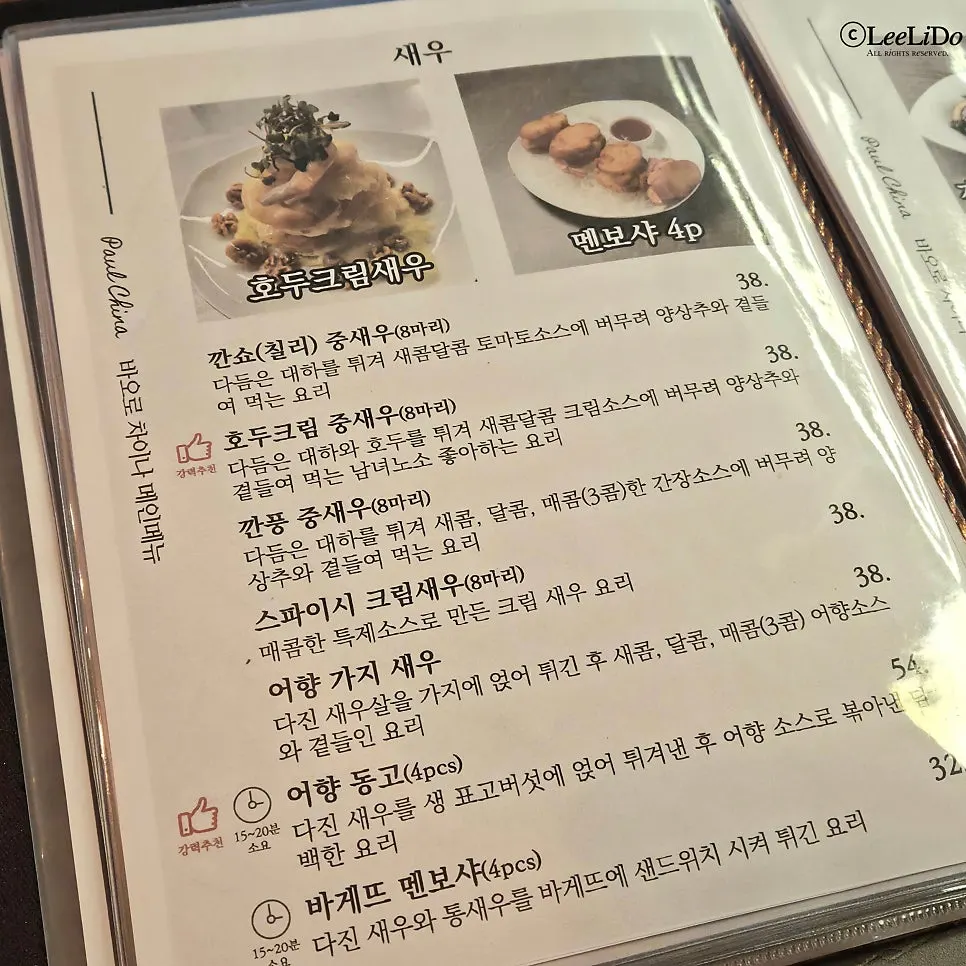 ⓒLeeLiDo
All rights reserved.
새우
호두크림새우
멘보샤 4p
Paul China 바오로 차이나 메인메뉴
38.
깐쇼(칠리) 중새우(8마리)
다듬은 대하를 튀겨 새콤달콤 토마토소스에 버무려 양상추와 곁들
여 먹는 요리
38.
강력추천
호두크림 중새우(8마리)
다듬은 대하와 호두를 튀겨 새콤달콤 크림소스에 버무려 양상추와
곁들여 먹는 남녀노소 좋아하는 요리
38.
깐풍 중새우(8마리)
다듬은 대하를 튀겨 새콤, 달콤, 매콤(3콤)한 간장소스에 버무려 양
상추와 곁들여 먹는 요리
38.
스파이시 크림새우(8마리)
매콤한 특제소스로 만든 크림 새우 요리
38.
어향 가지 새우
다진 새우살을 가지에 얹어 튀긴 후 새콤, 달콤, 매콤(3콤) 어향소스
와 곁들인 요리
54.
강력추천
15~20분
소요
어향 동고(4pcs)
다진 새우를 생 표고버섯에 얹어 튀겨낸 후 어향 소스로 볶아낸 담
백한 요리
32.
15~20분
소요
바게뜨 멘보샤(4pcs)
다진 새우와 통새우를 바게뜨에 샌드위치 시켜 튀긴 요리
Paul China